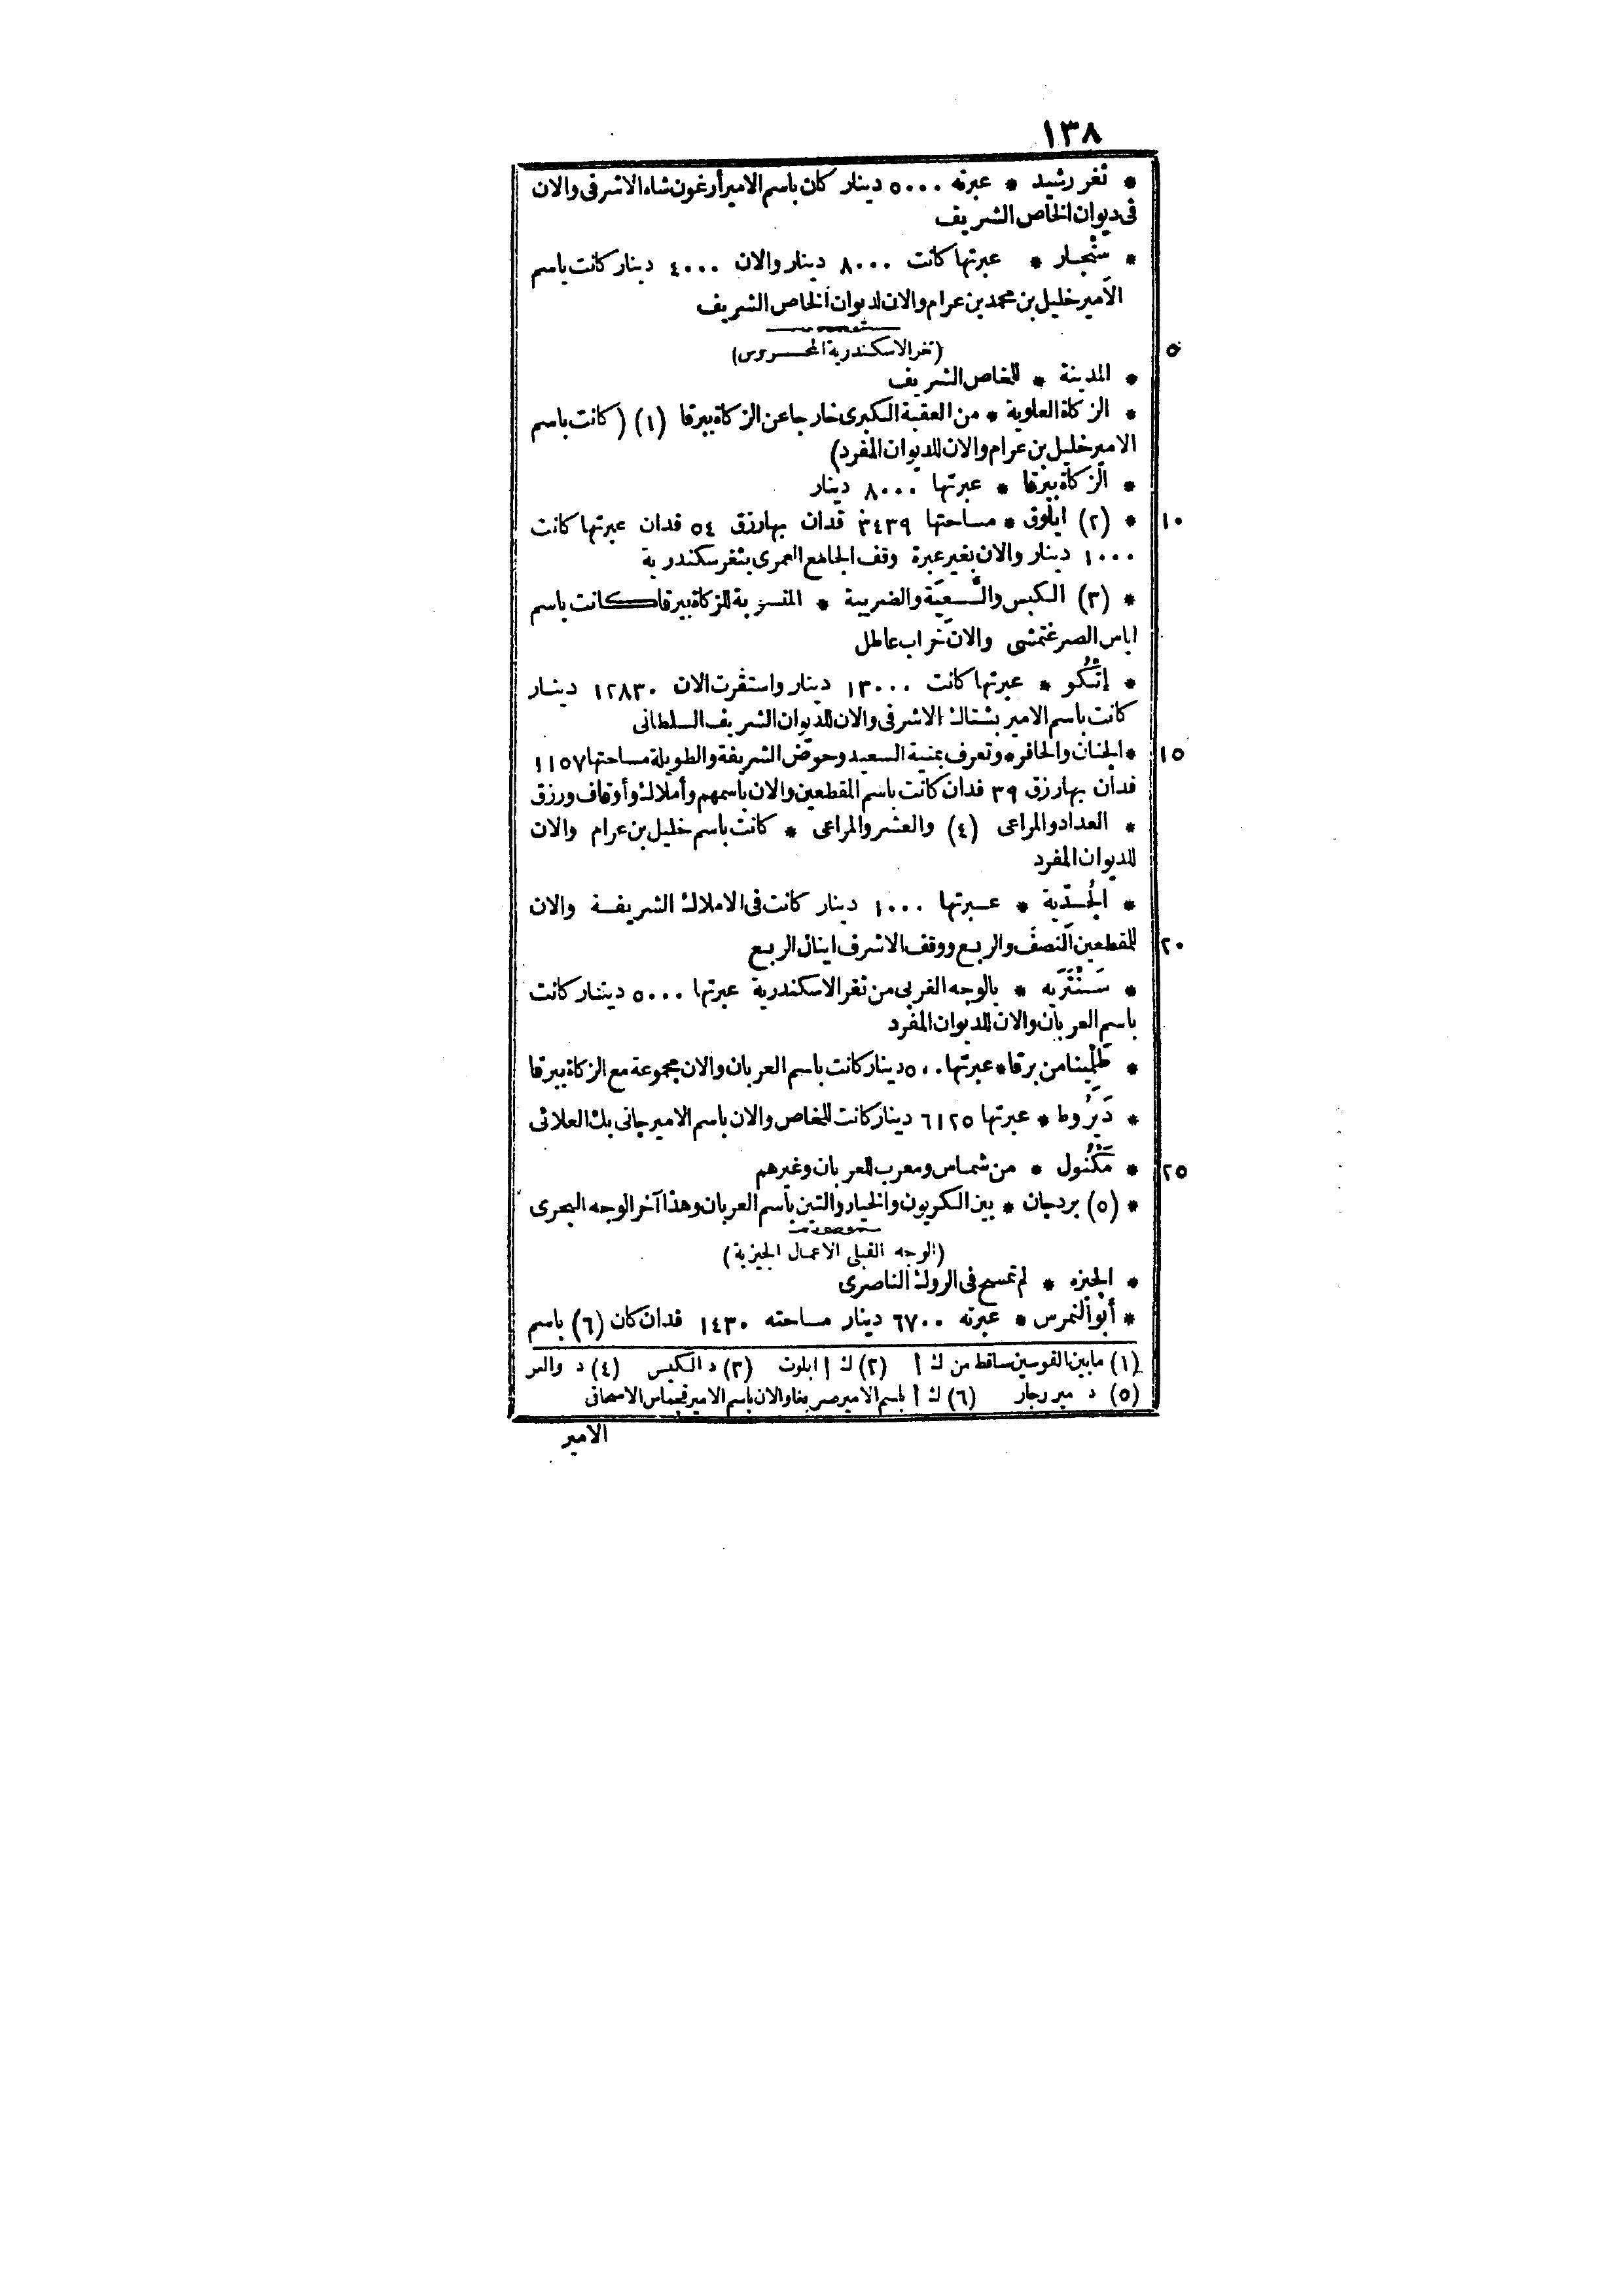 ١٣٨
* ثغر رشيد * عبرته ٥٠٠٠ دينار كان باسم الامير أرغون شاه الاشرفى والان
فى ديوان الخاص الشريف
* سَنْجار * عبرتها كانت ٨٠٠٠ دينار والان ٤٠٠٠ دينار كانت باسم
الامير خليل بن محمد بن عرام والان لديوان الخاص الشريف
٥
(ثغر الاسكندرية المحروس)
* المدينة * للخاص الشريف
* الزكاة العلوية * من العقبة الكبرى خارجا عن الزكاة ببرقا (١) (كانت باسم
الامير خليل بن عرام والان للديوان المفرد)
* الزكاة ببرقا * عبرتها ٨٠٠٠ دينار
١٠ * (٢) ايلوق * مساحتها ٣٤٣٩ فدان بها رزق ٥٤ فدان عبرتها كانت
١٠٠٠ دينار والان بغير عبرة وقف الجامع العمرى بثغر سكندرية
* (٣) الكبس والسعية والضريبة * المنسوبة للزكاة ببرقا كانت باسم
اياس الصرغتمشى والان خراب عاطل
* إتْكُو * عبرتها كانت ١٣٠٠٠ دينار واستقرت الان ١٢٨٣٠ دينار
كانت باسم الامير بشتاك الاشرفى والان للديوان الشريف السلطانى
١٥ * الجنان والحافر * وتعرف بمنية السعيد وحوض الشريفة والطويلة مساحتها ١١٥٧
فدان بها رزق ٣٩ فدان كانت باسم المقطعين والان باسمهم وأملاك وأوقاف ورزق
* العداد والمراعى (٤) والعشر والمراعى * كانت باسم خليل بن عرام والان
للديوان المفرد
* الجُدّية * عبرتها ١٠٠٠ دينار كانت فى الاملاك الشريفة والان
٢٠ للمقطعين النصف والربع ووقف الاشرف اينال الربع
* سَنْتَرَيه * بالوجه الغربى من ثغر الاسكندرية عبرتها ٥٠٠٠ دينار كانت
باسم العربان والان للديوان المفرد
* طلْمِيثا من برقا * عبرتها ٥٠٠ دينار كانت باسم العربان والان مجموعة مع الزكاة ببرقا
* دَيرُوط * عبرتها ٦١٢٥ دينار كانت للخاص والان باسم الامير جانى بك العلائى
٢٥ * مَكْنُول * من شماس ومعرب للعربان وغيرهم
* (٥) بردجان * بين الكريون والخيار والتين باسم العربان وهذا آخر الوجه البحرى
(الوجه القبلى الاعمال الجيزية)
* الجيزه * لم تمسح فى الروك الناصرى
* أبو النمرس * عبرته ٦٧٠٠ دينار مساحته ١٤٣٠ فدان كان (٦) باسم
(١) ما بين القوسين ساقط من ك أ (٢) ك أ ابلوت (٣) د الكبس (٤) د والعر
(٥) د مير رجار (٦) ك أ باسم الامير صر بغا والان باسم الامير قجماس الاسحاقى
الامير